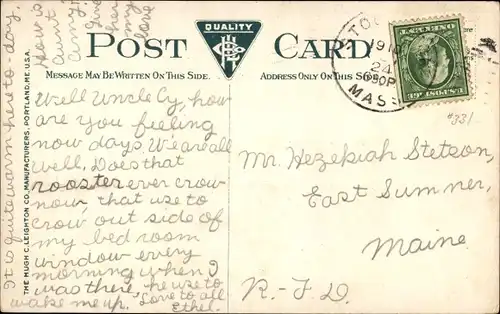 How is
Aunt
Amy?
Give
her
my
love
POST CARD
QUALITY
MESSAGE MAY BE WRITTEN ON THIS SIDE.
ADDRESS ONLY ON THIS SIDE
Well Uncle Cy, how
are you feeling
now days. We are all
well. Does that
rooster ever crow
now, that use to
crow out side of
my bed room
window every
morning when I
was there, he use to
wake me up. Love to all
Ethel.
It is quite warm here to-day.
THE HUGH C. LEIGHTON CO. MANUFACTURERS, PORTLAND, ME. U.S.A.
24
MASS
#331
Mr. Hezekiah Stetson,
East Sumner,
Maine
R-F-D.